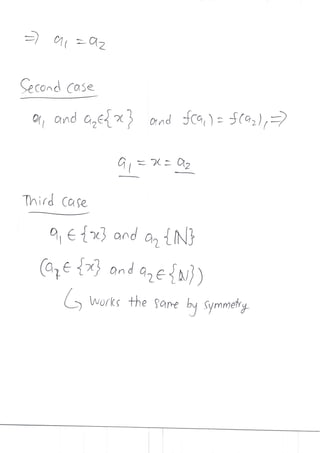 ⇒ a₁ = a₂
Second case
a₁ and a₂∈{x} and f(a₁) = f(a₂), ⇒
a₁ = x = a₂
Third case
a₁ ∈ {x} and a₂ {ℕ}
(a₂ ∈ {x} and a₂ ∈ {ℕ})
↳ works the same by symmetry